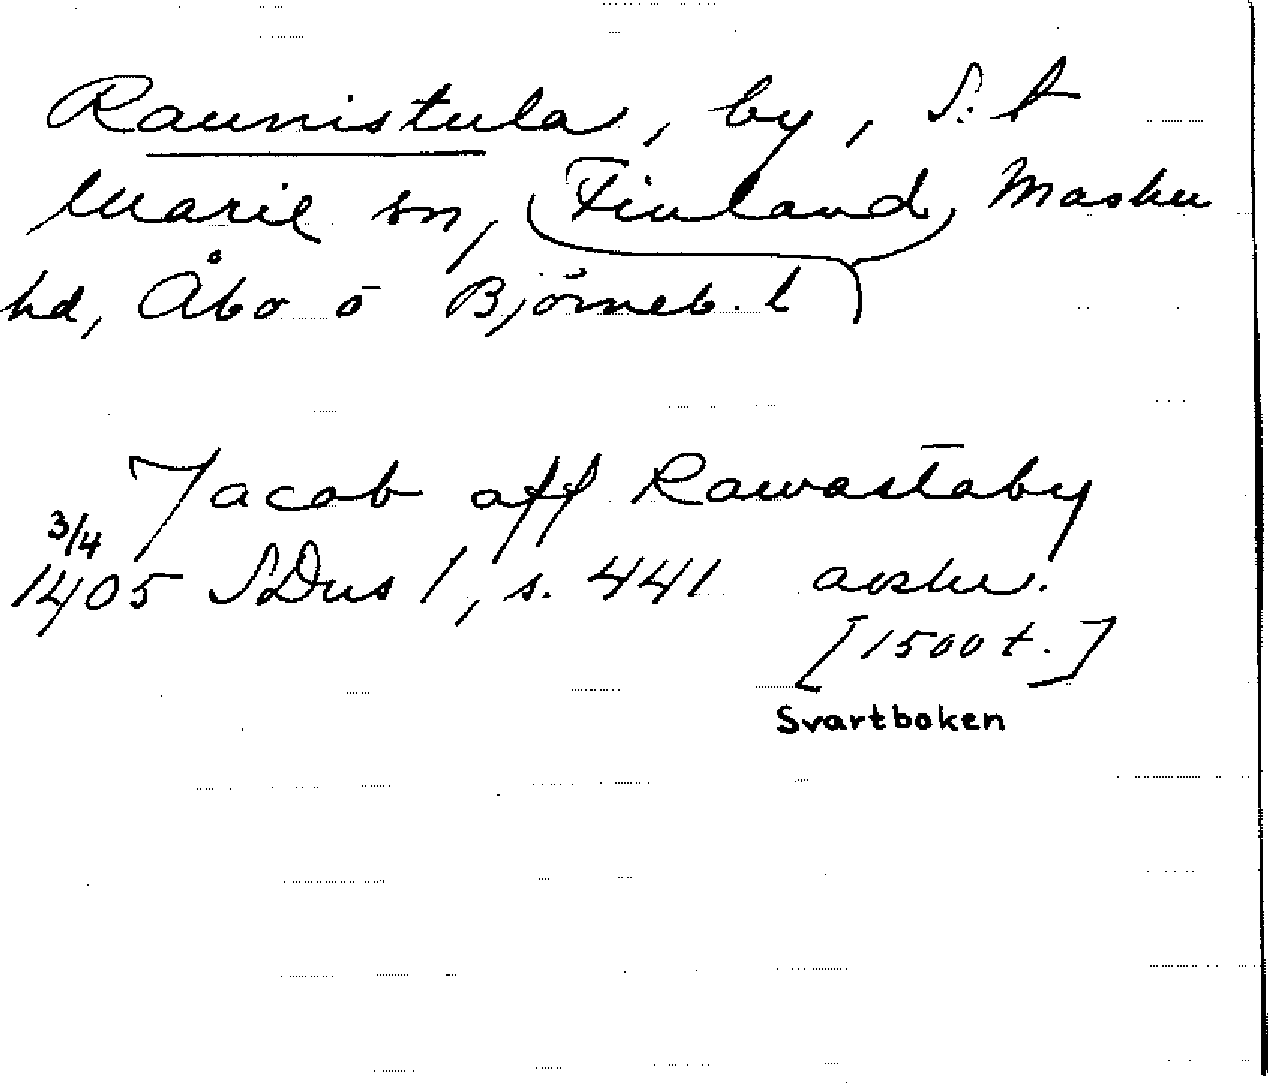 Raunistula, by, S:t
Marie sn, Finland, Masku
hd, Åbo o Björneb. l
Jacob aff Rawastaby
3/4
1405 SDns 1, s. 441 avskr.
[1500 t.]
Svartboken